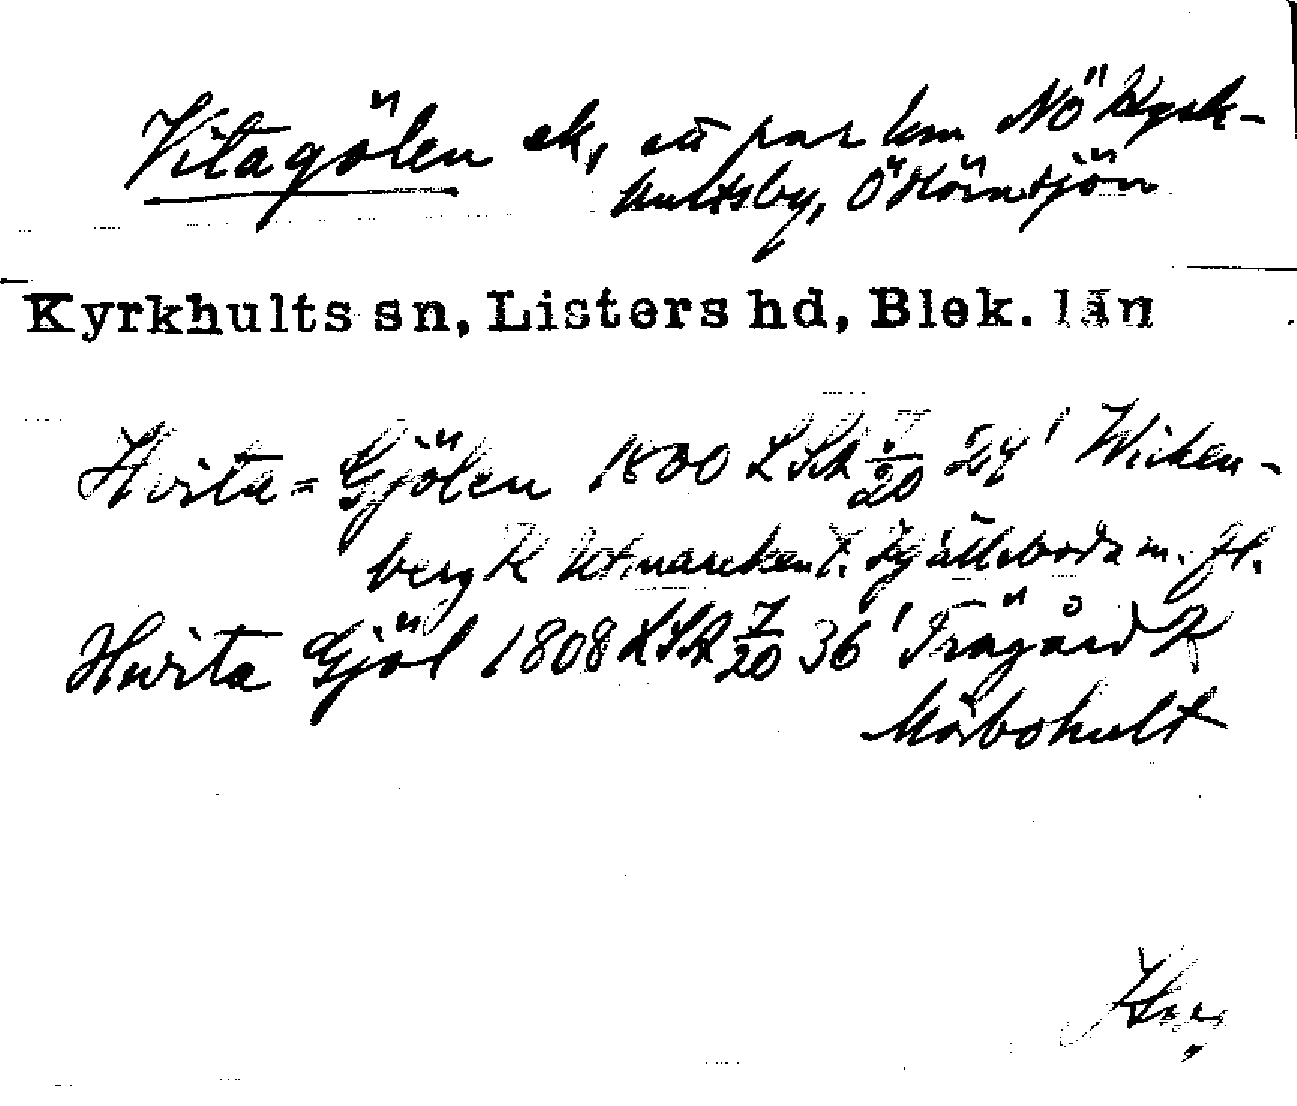 Vitagölen ek, ett par km NÖ Kyrk-
hultsby, Ö Hörnsjön
Kyrkhults sn, Listers hd, Blek. län
Hvita=Gjölen 1800 LSA 7/20 24' Wirken-
berg K Utmarcken t. Kjällsboda m. fl.
Hwita Gjöl 1808 LSA 7/20 36' Trägård K
Mörbohult